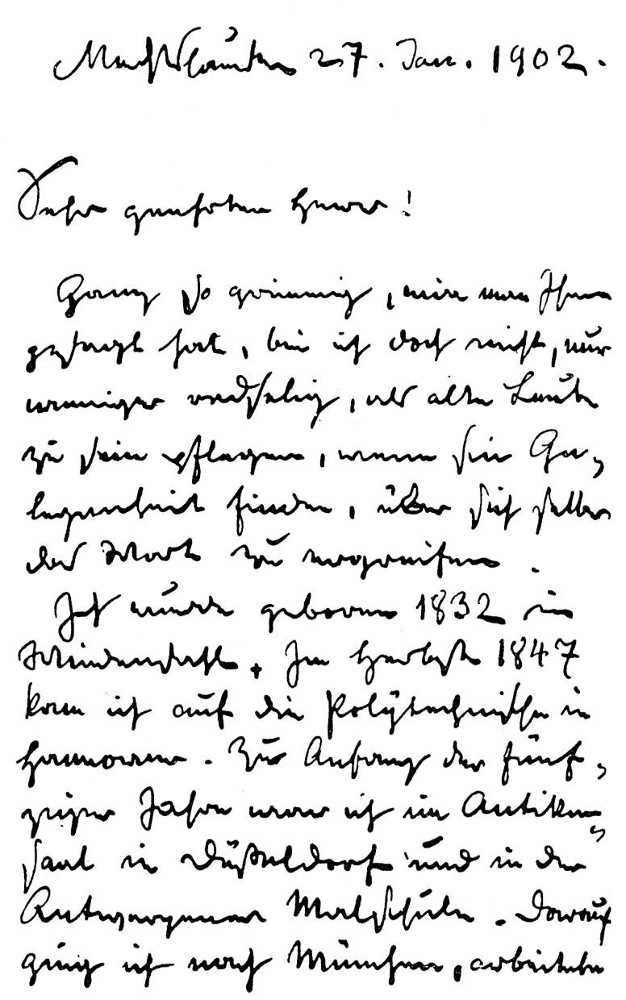 Mechtshausen 27. Jan. 1902.
Sehr geehrter Herr!
Ganz so grimmig, wie man Ihnen
gesagt hat, bin ich doch nicht, nur
weniger redselig, als alte Leute
zu sein pflegen, wenn sie Ge-
legenheit finden, über sich selber
das Wort zu ergreifen.
Ich wurde geboren 1832 in
Wiedensahl. Im Herbste 1847
kam ich auf die Polytechnische in
Hannover. Zu Anfang der fünf-
ziger Jahre war ich im Antiken-
saal in Düsseldorf und in der
Antwerpener Malschule. Darauf
ging ich nach München, arbeitete